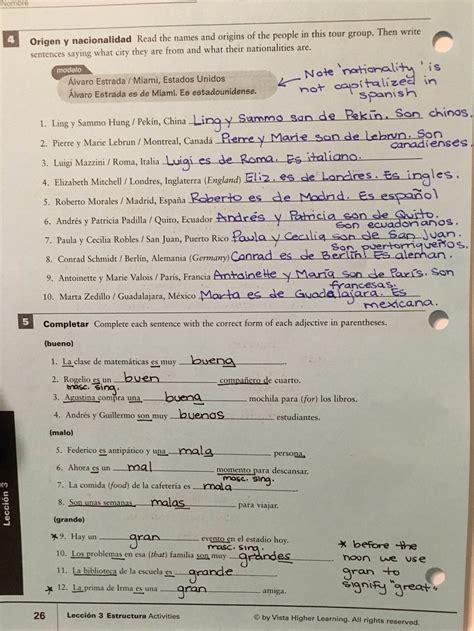 Nombre
4 Origen y nacionalidad Read the names and origins of the people in this tour group. Then write
sentences saying what city they are from and what their nationalities are.
modelo
Álvaro Estrada / Miami, Estados Unidos
Álvaro Estrada es de Miami. Es estadounidense.
Note 'nationality' is
not capitalized in
spanish
1. Ling y Sammo Hung / Pekín, China Ling y Summo son de Pekín. Son chinos.
2. Pierre y Marie Lebrun / Montreal, Canadá Pierre y Marie son de Lebrun. Son
canadienses.
3. Luigi Mazzini / Roma, Italia Luigi es de Roma. Es italiano.
4. Elizabeth Mitchell / Londres, Inglaterra (England) Eliz. es de Londres. Es ingles.
5. Roberto Morales / Madrid, España Roberto es de Madrid. Es español
6. Andrés y Patricia Padilla / Quito, Ecuador Andrés y Patricia son de Quito.
Son ecuadorianos.
7. Paula y Cecilia Robles / San Juan, Puerto Rico Paula y Cecilia son de San Juan.
Son puertorriqueños.
8. Conrad Schmidt / Berlín, Alemania (Germany) Conrad es de Berlin. Es aleman.
9. Antoinette y Marie Valois / París, Francia Antoinette y María son de París. Son
francesas.
10. Marta Zedillo / Guadalajara, México Marta es de Guadalajara. Es
mexicana.
5 Completar Complete each sentence with the correct form of each adjective in parentheses.
(bueno)
1. La clase de matemáticas es muy buena.
2. Rogelio es un buen compañero de cuarto.
masc. sing.
3. Agustina compra una buena mochila para (for) los libros.
4. Andrés y Guillermo son muy buenos estudiantes.
(malo)
5. Federico es antipático y una mala persona.
6. Ahora es un mal momento para descansar.
masc. sing.
7. La comida (food) de la cafetería es mala.
8. Son unas semanas malas para viajar.
(grande)
* 9. Hay un gran evento en el estadio hoy.
masc. sing.
10. Los problemas en esa (that) familia son muy grandes.
11. La biblioteca de la escuela es grande.
* 12. La prima de Irma es una gran amiga.
* before the
noun we use
gran to
signify "great"
Lección 3
26 Lección 3 Estructura Activities © by Vista Higher Learning. All rights reserved.